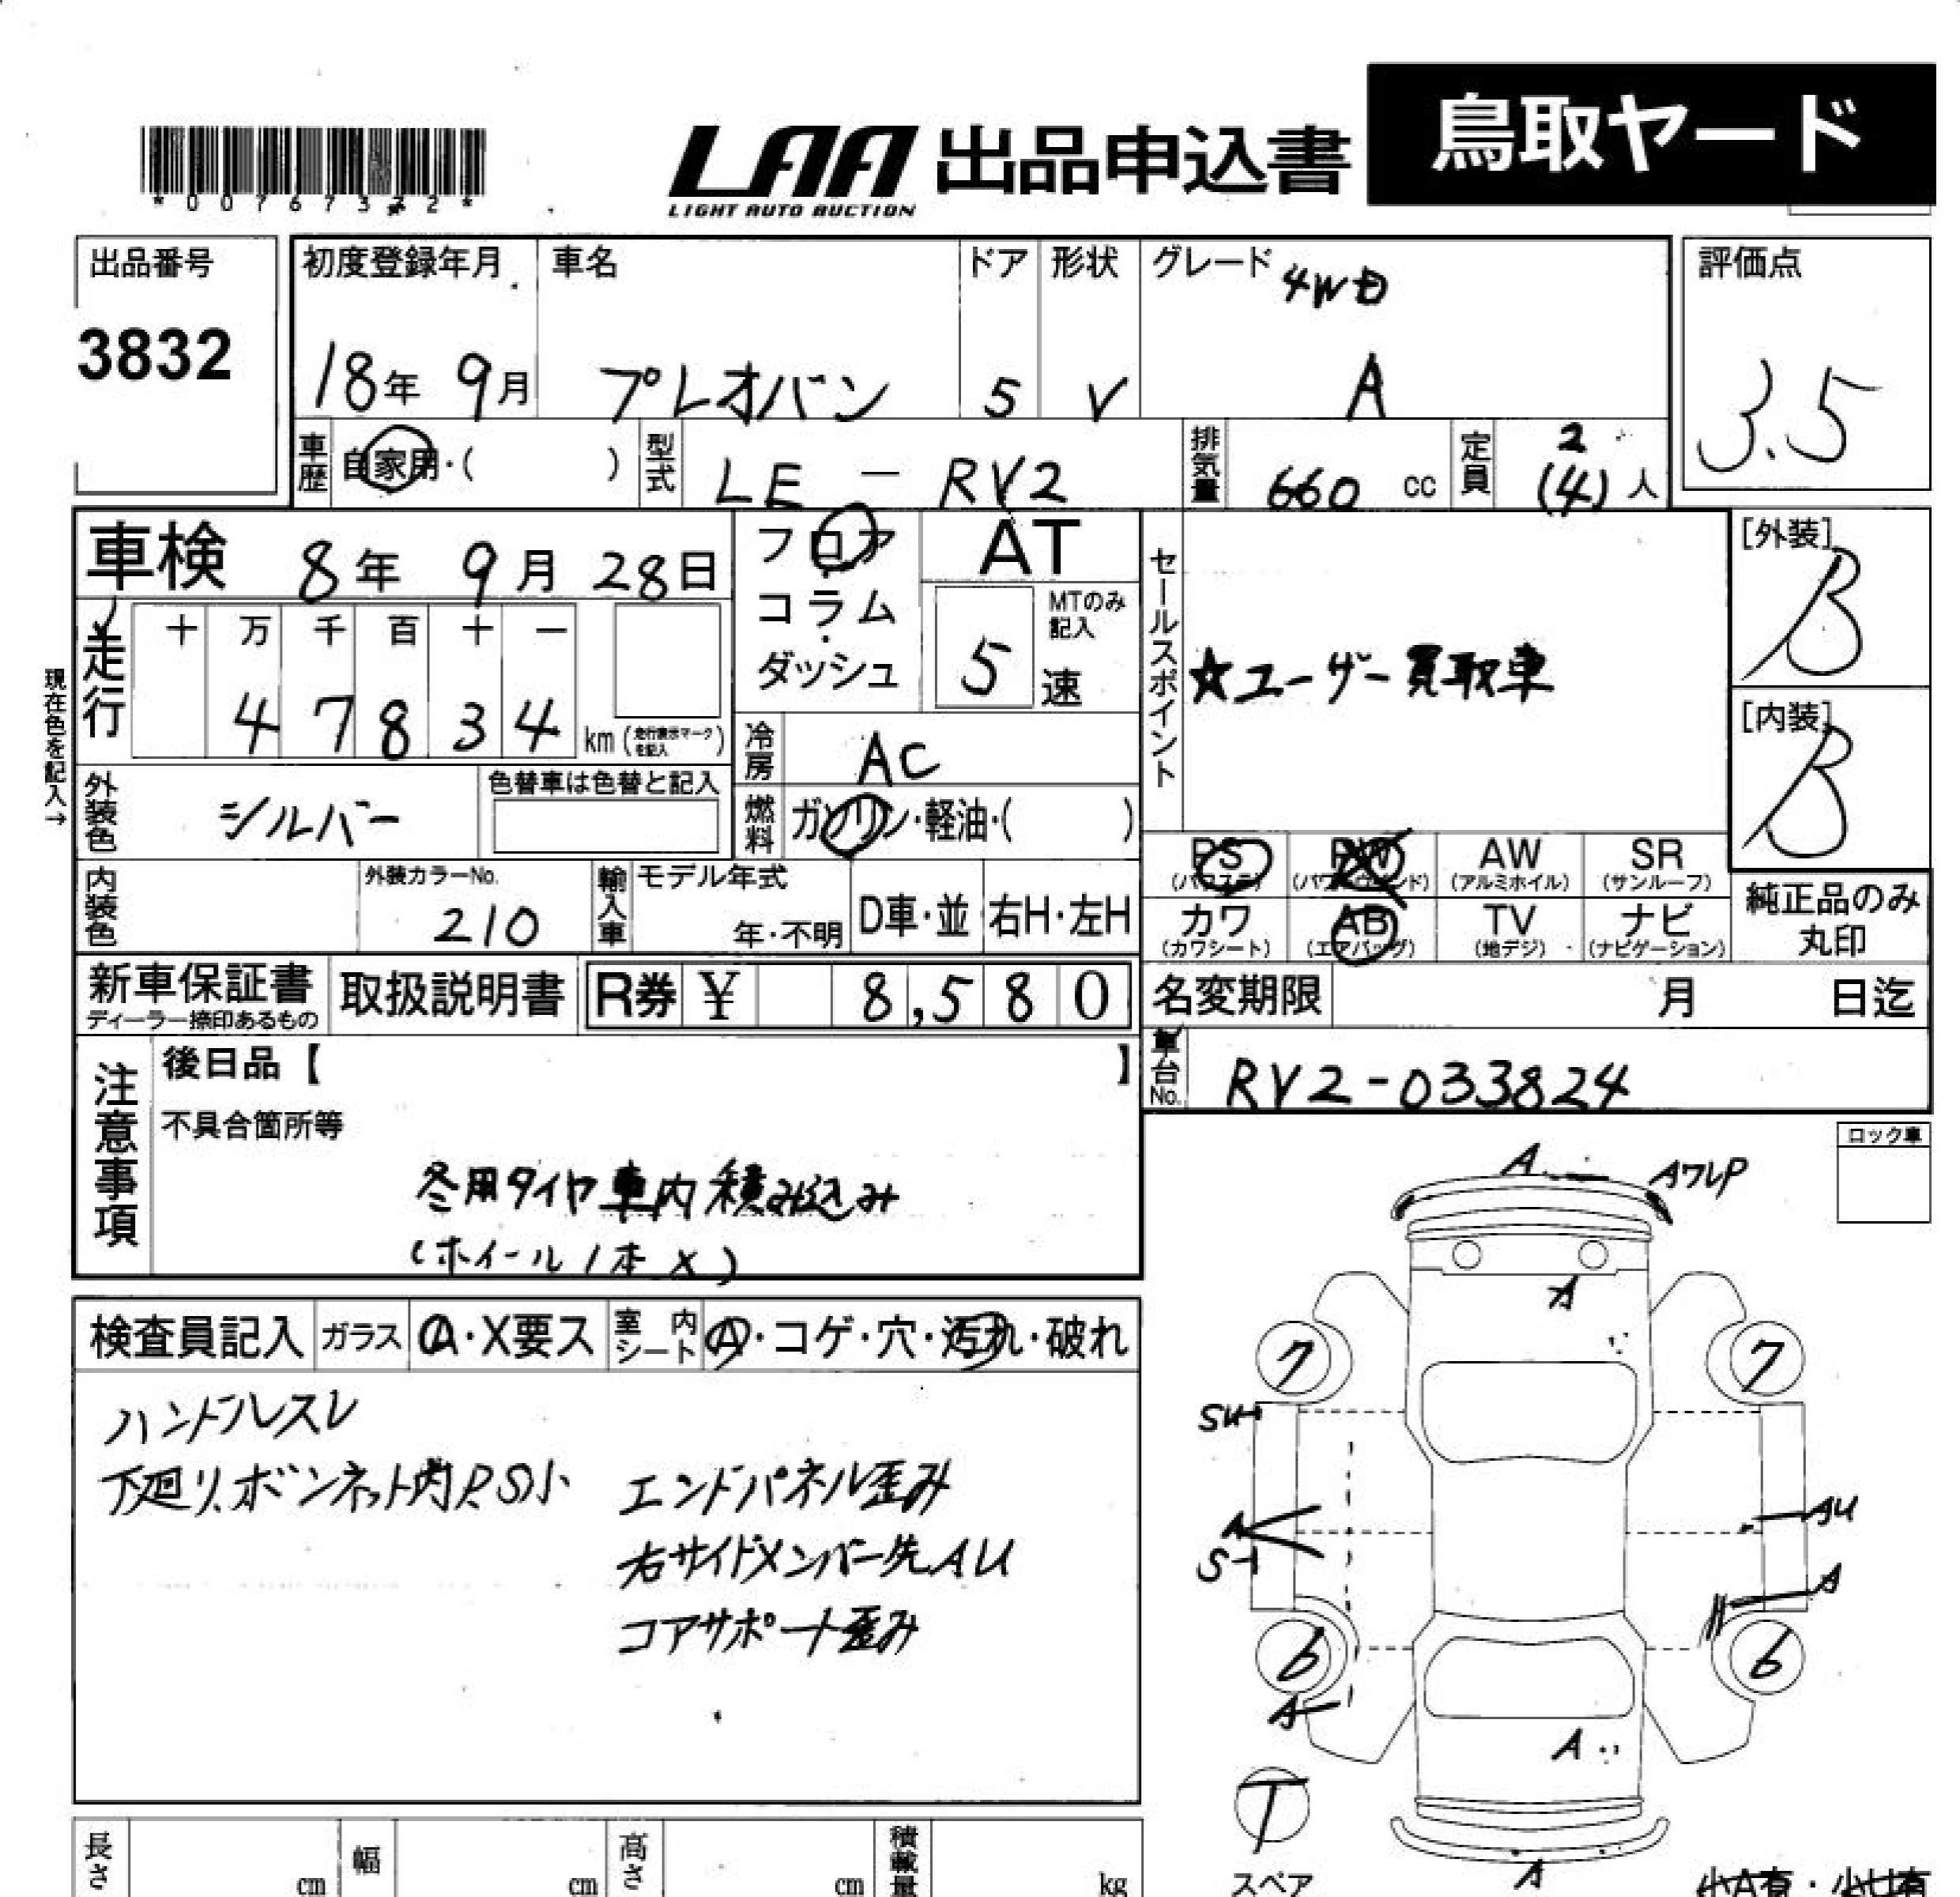 鳥取ヤード
LAA 出品申込書
LIGHT AUTO AUCTION
*00767332*
出品番号
3832
初度登録年月
18年 9月
車名
プレオバン
ドア
5
形状
V
グレード 4WD
A
評価点
3.5
車歴 自家用・( )
型式 LE - RV2
排気量 660 cc
定員 2 (4)人
車検 8年 9月 28日
フロア・コラム・ダッシュ
AT
5速
MTのみ記入
セールスポイント
☆ユーザー買取車
[外装]
B
[内装]
B
現在色を記入→
走行 十 万 千 百 十 一
4 7 8 3 4 km (走行表示マークを記入)
冷房 AC
外装色 シルバー
色替車は色替と記入
燃料 ガソリン・軽油・( )
内装色
外装カラーNo.
210
輸入車 モデル年式
年・不明
D車・並
右H・左H
PS (パワステ)
PW (パワーウインド)
AW (アルミホイル)
SR (サンルーフ)
カワ (カワシート)
AB (エアバッグ)
TV (地デジ)
ナビ (ナビゲーション)
純正品のみ丸印
新車保証書
ディーラー捺印あるもの
取扱説明書
R券 ¥ 8,580
名変期限 月 日迄
車台No. RV2-033824
注意事項
後日品【 】
不具合箇所等
冬用タイヤ車内積み込み
(ホイール1本X)
ロック車
検査員記入
ガラス A・X要ス
室内シート A・コゲ・穴・汚れ・破れ
ハンドルスレ
下廻り、ボンネット内P.S小
エンドパネル歪み
右サイドメンバー先AU
コアサポート歪み
A
AワレP
A
7
7
SU
A
S
AU
A
6
6
A
A
T
スペア
A
小A有・小U有
長さ cm
幅 cm
高さ cm
積載量 kg